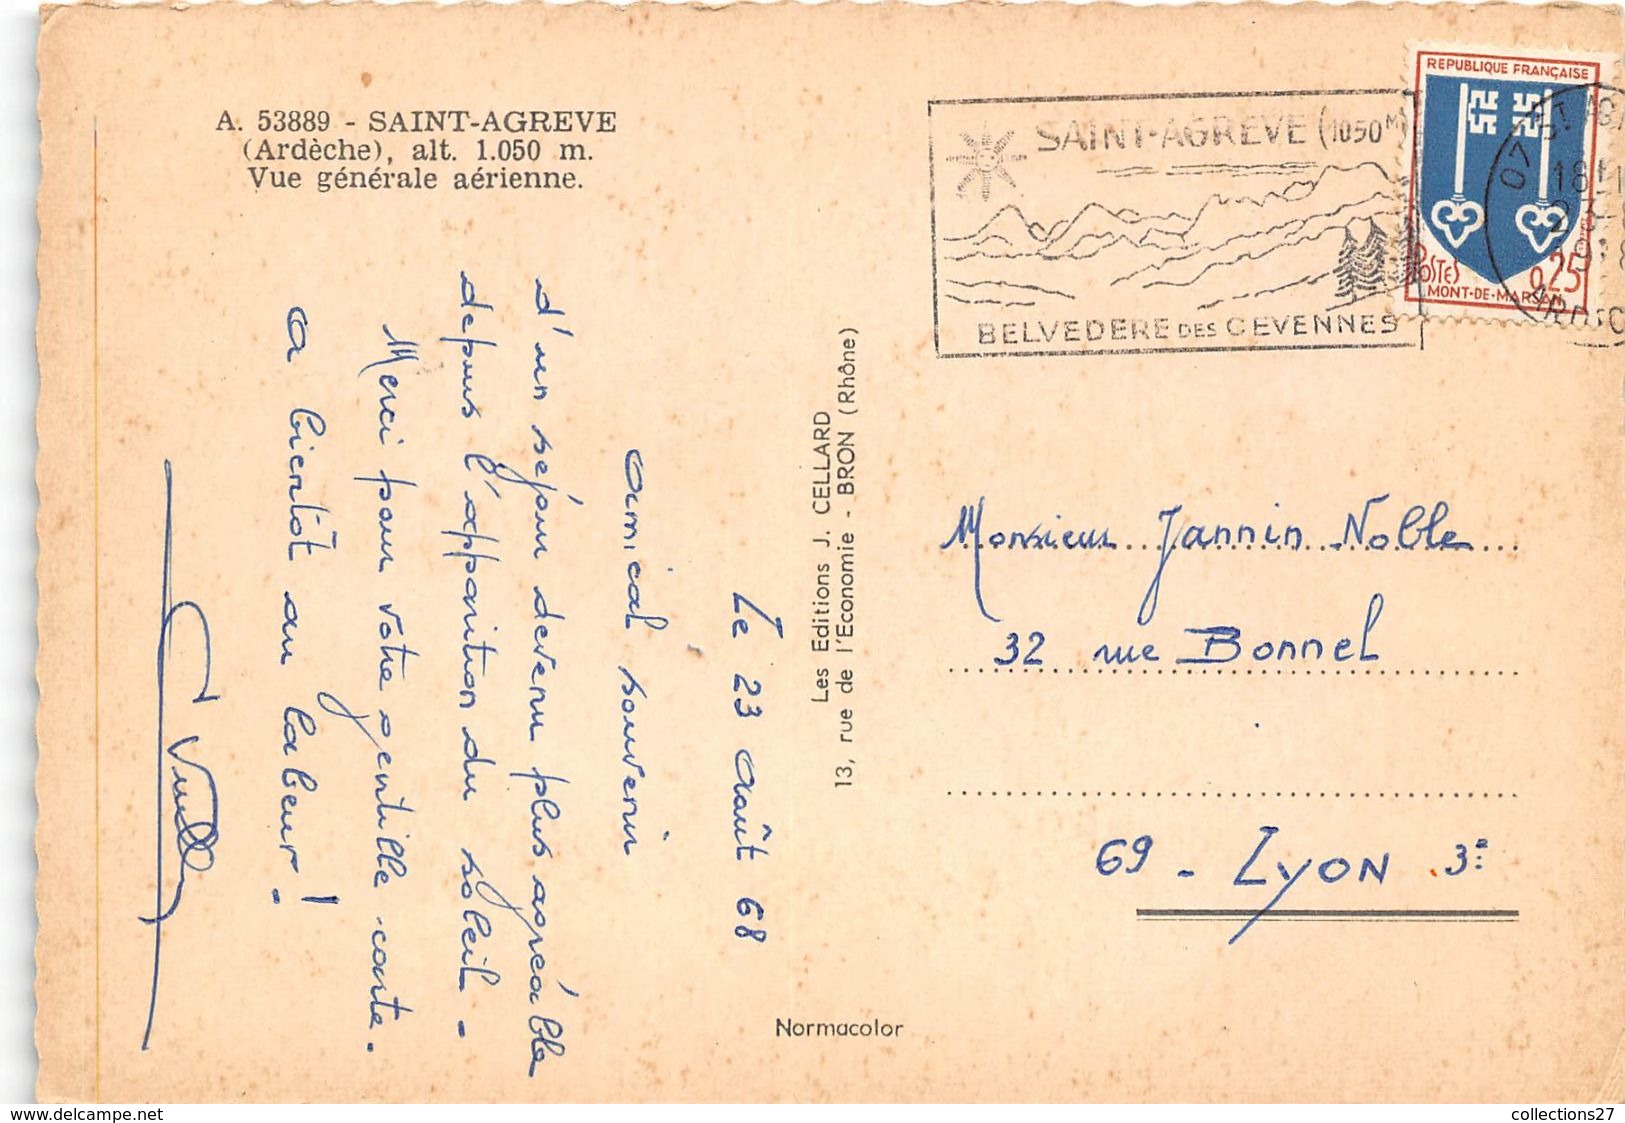 A. 53889 - SAINT-AGREVE
(Ardèche), alt. 1.050 m.
Vue générale aérienne.
Le 23 août 68
amical souvenir
d'un séjour devenu plus agréable
depuis l'apparition du soleil.
Merci pour votre gentille carte.
a bientôt au labeur !
Les Editions J. CELLARD
13, rue de l'Economie - BRON (Rhône)
Normacolor
SAINT-AGREVE (1050 M)
BELVEDERE DES CEVENNES
REPUBLIQUE FRANÇAISE
POSTES 0,25
MONT-DE-MARSAN
07 ST AG
18H
23-8
ARDEC
Monsieur Jannin Noble
32 rue Bonnel
69 - LYON 3e
www.delcampe.net
collections27